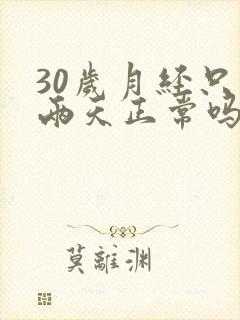 30歲月经只
兩天正常吗
莫離渊